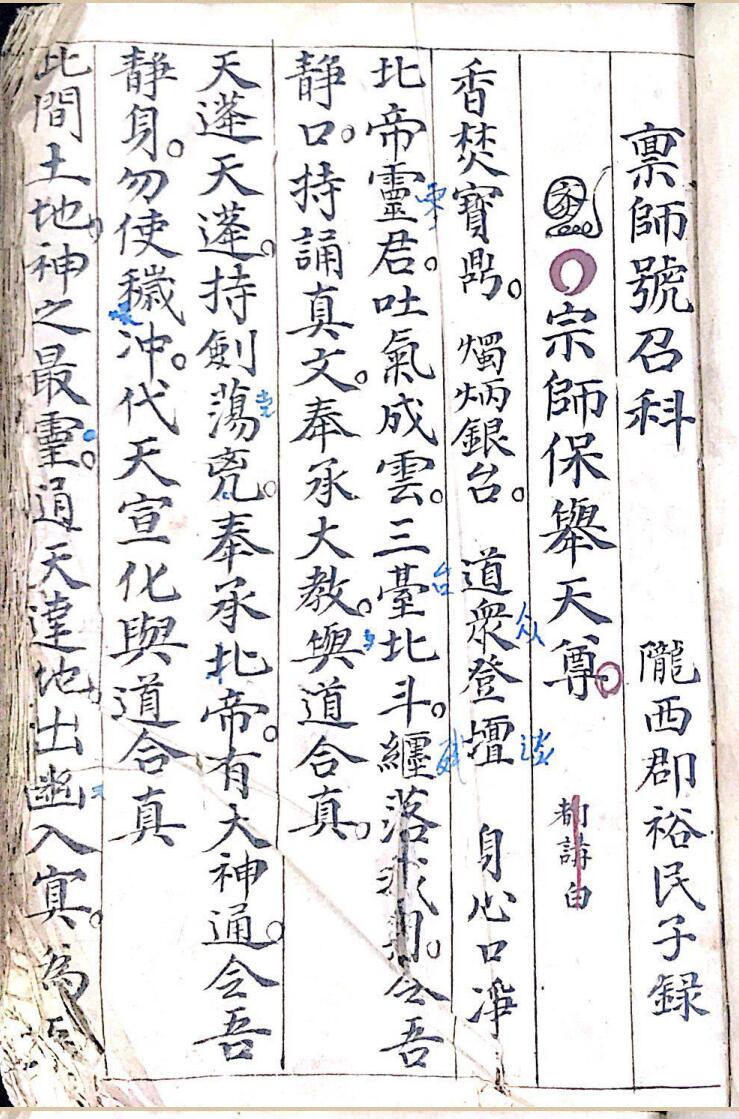 禀師號召科　隴西郡裕民子録
宗師保舉天尊。都講白
香焚寶鼎。燭炳銀台。道衆登壇　身心口净
北帝靈君。吐氣成雲。三臺北斗。纏落。令吾
静口。持誦真文。奉承大教。與道合真。
天蓬天蓬。持劍蕩兇。奉承北帝。有大神通。令吾
静身。勿使穢冲。代天宣化與道合真
此間土地。神之最靈。通天達地。出幽入冥。為
台
众